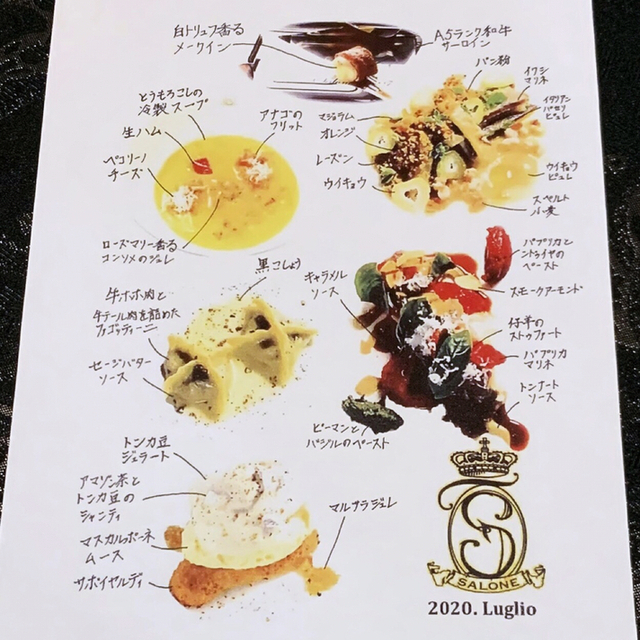 白トリュフ香る
メークイン
A5ランク和牛
サーロイン
とうもろこしの
冷製スープ
生ハム
ペコリーノ
チーズ
アナゴの
フリット
ローズマリー香る
コンソメのジュレ
パン粉
イワシ
マリネ
イタリアン
パセリ
ピュレ
マジョラム
オレンジ
レーズン
ウイキョウ
ウイキョウ
ピュレ
スペルト
小麦
黒こしょう
牛ホホ肉と
牛テール肉を詰めた
ファゴッティーニ
セージバター
ソース
キャラメル
ソース
パプリカと
ンドゥイヤの
ペースト
スモークアーモンド
仔羊の
ストゥファート
パプリカ
マリネ
トンナート
ソース
ピーマンと
バジルのペースト
トンカ豆
ジェラート
アマゾン茶と
トンカ豆の
シャンティ
マスカルポーネ
ムース
サボイヤルディ
マルサラジュレ
S
SALONE
2020. Luglio